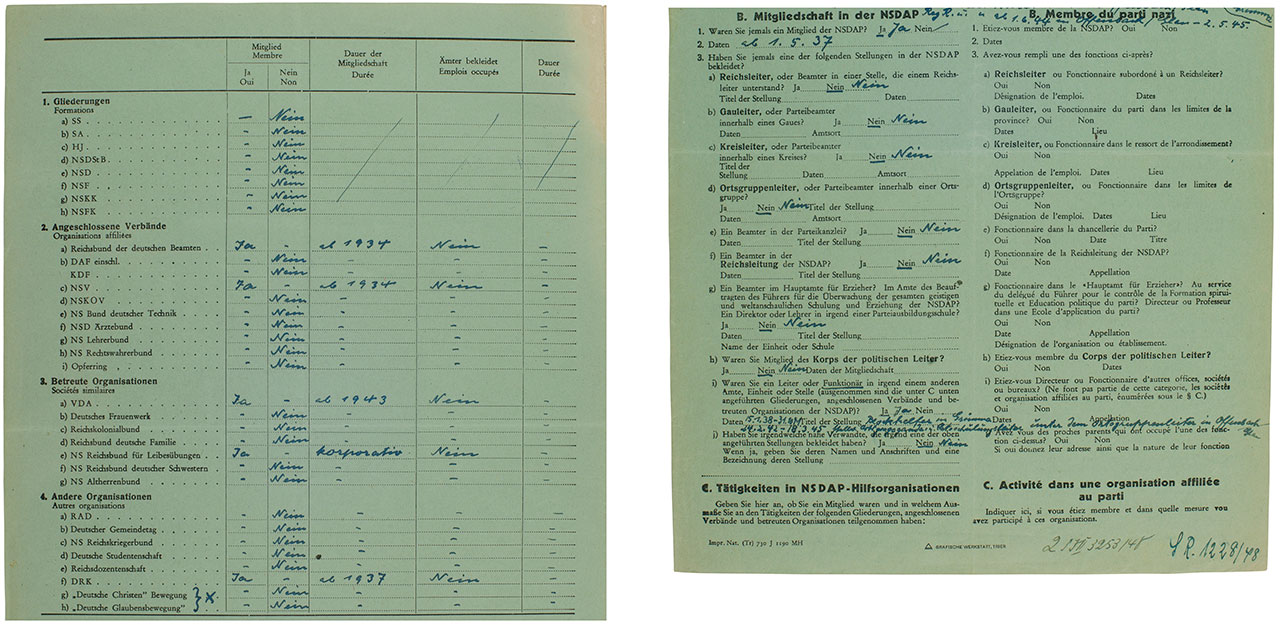 Mitglied Membre
Dauer der Mitgliedschaft Durée
Ämter bekleidet Emplois occupés
Dauer Durée
Ja Oui
Nein Non
1. Gliederungen
Formations
a) SS — Nein
b) SA " Nein
c) HJ " Nein
d) NSDStB " Nein
e) NSD " Nein
f) NSF " Nein
g) NSKK " Nein
h) NSFK " Nein
2. Angeschlossene Verbände
Organisations affiliées
a) Reichsbund der deutschen Beamten Ja - ab 1934 Nein -
b) DAF einschl. " Nein " " -
KDF " Nein " " -
c) NSV Ja - ab 1934 Nein -
d) NSKOV " Nein " " -
e) NS Bund deutscher Technik " Nein " " -
f) NSD Ärztebund " Nein " " -
g) NS Lehrerbund " Nein " " -
h) NS Rechtswahrerbund " Nein " " -
i) Opferring " Nein " " -
3. Betreute Organisationen
Sociétés similaires
a) VDA Ja - ab 1943 Nein -
b) Deutsches Frauenwerk " Nein " " -
c) Reichskolonialbund " Nein " " -
d) Reichsbund deutsche Familie " Nein " " -
e) NS Reichsbund für Leibesübungen Ja - korporativ Nein -
f) NS Reichsbund deutscher Schwestern " Nein " " -
g) NS Altherrenbund " Nein " " -
4. Andere Organisationen
Autres organisations
a) RAD " Nein " " -
b) Deutscher Gemeindetag " Nein " " -
c) NS Reichskriegerbund " Nein " " -
d) Deutsche Studentenschaft " Nein " " -
e) Reichsdozentenschaft " Nein " " -
f) DRK Ja - ab 1937 Nein -
g) „Deutsche Christen" Bewegung " Nein " " -
h) „Deutsche Glaubensbewegung" " Nein " " -
B. Mitgliedschaft in der NSDAP
1. Waren Sie jemals ein Mitglied der NSDAP? Ja Ja Nein
2. Daten ab 1.5.37
3. Haben Sie jemals eine der folgenden Stellungen in der NSDAP
bekleidet?
a) Reichsleiter, oder Beamter in einer Stelle, die einem Reichs-
leiter unterstand? Ja Nein Nein
Titel der Stellung Daten
b) Gauleiter, oder Parteibeamter
innerhalb eines Gaues? Ja Nein Nein
Daten Amtsort
c) Kreisleiter, oder Parteibeamter
innerhalb eines Kreises? Ja Nein Nein
Titel der
Stellung Daten Amtsort
d) Ortsgruppenleiter, oder Parteibeamter innerhalb einer Orts-
gruppe?
Ja Nein Nein Titel der Stellung
Daten Amtsort
e) Ein Beamter in der Parteikanzlei? Ja Nein Nein
Daten Titel der Stellung
f) Ein Beamter in der
Reichsleitung der NSDAP? Ja Nein Nein
Daten Titel der Stellung
g) Ein Beamter im Hauptamte für Erzieher? Im Amte des Beauf-
tragten des Führers für die Überwachung der gesamten geistigen
und weltanschaulichen Schulung und Erziehung der NSDAP?
Ein Direktor oder Lehrer in irgend einer Parteiausbildungsschule?
Ja Nein Nein
Daten Titel der Stellung
Name der Einheit oder Schule
h) Waren Sie Mitglied des Korps der politischen Leiter?
Ja Nein Nein Daten der Mitgliedschaft
i) Waren Sie ein Leiter oder Funktionär in irgend einem anderen
Amte, Einheit oder Stelle (ausgenommen sind die unter C. unten
angeführten Gliederungen, angeschlossenen Verbände und be-
treuten Organisationen der NSDAP)? Ja Ja Nein
Daten Titel der Stellung Grimma
unter dem Ortsgruppenleiter in Offenbach
j) Haben Sie irgendwelche nahe Verwandte, die irgend eine der oben
angeführten Stellungen bekleidet haben? Ja Nein Nein
Wenn ja, geben Sie deren Namen und Anschriften und eine
Bezeichnung deren Stellung
C. Tätigkeiten in NSDAP-Hilfsorganisationen
Geben Sie hier an, ob Sie ein Mitglied waren und in welchem Aus-
maße Sie an den Tätigkeiten der folgenden Gliederungen, angeschlossenen
Verbände und betreuten Organisationen teilgenommen haben:
Impr. Nat. (Tr) 730 J 1190 MH
GRAFISCHE WERKSTATT, TRIER
B. Membre du parti nazi
2.5.45.
1. Etiez-vous membre de la NSDAP? Oui Non
2. Dates
3. Avez-vous rempli une des fonctions ci-après?
a) Reichsleiter ou Fonctionnaire subordoné à un Reichsleiter?
Oui Non
Désignation de l'emploi. Dates
b) Gauleiter, ou Fonctionnaire du parti dans les limites de la
province? Oui Non
Dates Lieu
c) Kreisleiter, ou Fonctionnaire dans le ressort de l'arrondissement?
Oui Non
Appelation de l'emploi. Dates Lieu
d) Ortsgruppenleiter, ou Fonctionnaire dans les limites de
l'Ortsgruppe?
Oui Non
Désignation de l'emploi. Dates Lieu
e) Fonctionnaire dans la chancellerie du Parti?
Oui Non Date Titre
f) Fonctionnaire de la Reichsleitung der NSDAP?
Oui Non
Date Appellation
g) Fonctionnaire dans le «Hauptamt für Erzieher»? Au service
du délégué du Führer pour le contrôle de la Formation spiruit-
uelle et Education politique du parti? Directeur ou Professeur
dans une Ecole d'application du parti?
Oui Non
Date Appellation
Désignation de l'organisation ou établissement.
h) Etiez-vous membre du Corps der politischen Leiter?
Oui Non Dates
i) Etiez-vous Directeur ou Fonctionnaire d'autres offices, sociétés
ou bureaux? (Ne font pas partie de cette categorie, les sociétés
et organisation affiliées au parti, énumérées sous le § C.)
Oui Non
Dates Appellation
j) Avez vous des proches parents qui ont occupé l'une des fonc-
tion ci-dessus? Oui Non
Si oui donnez leur adresse ainsi que la nature de leur fonction
C. Activité dans une organisation affiliée
au parti
Indiquer ici, si vous étiez membre et dans quelle mesure vou
avez participé à ces organisations.
SR. 1228/48